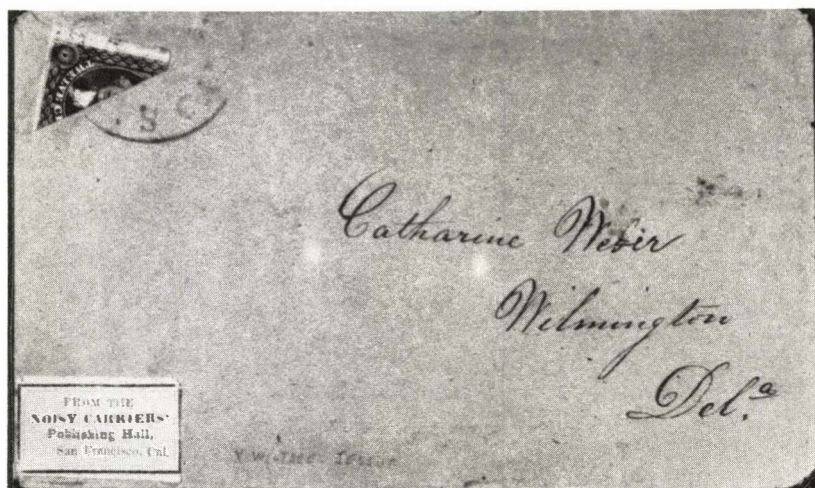 S C
Catharine Weair
Wilmington
Del.ª
FROM THE
NOISY CARRIERS'
Publishing Hall,
San Francisco, Cal.